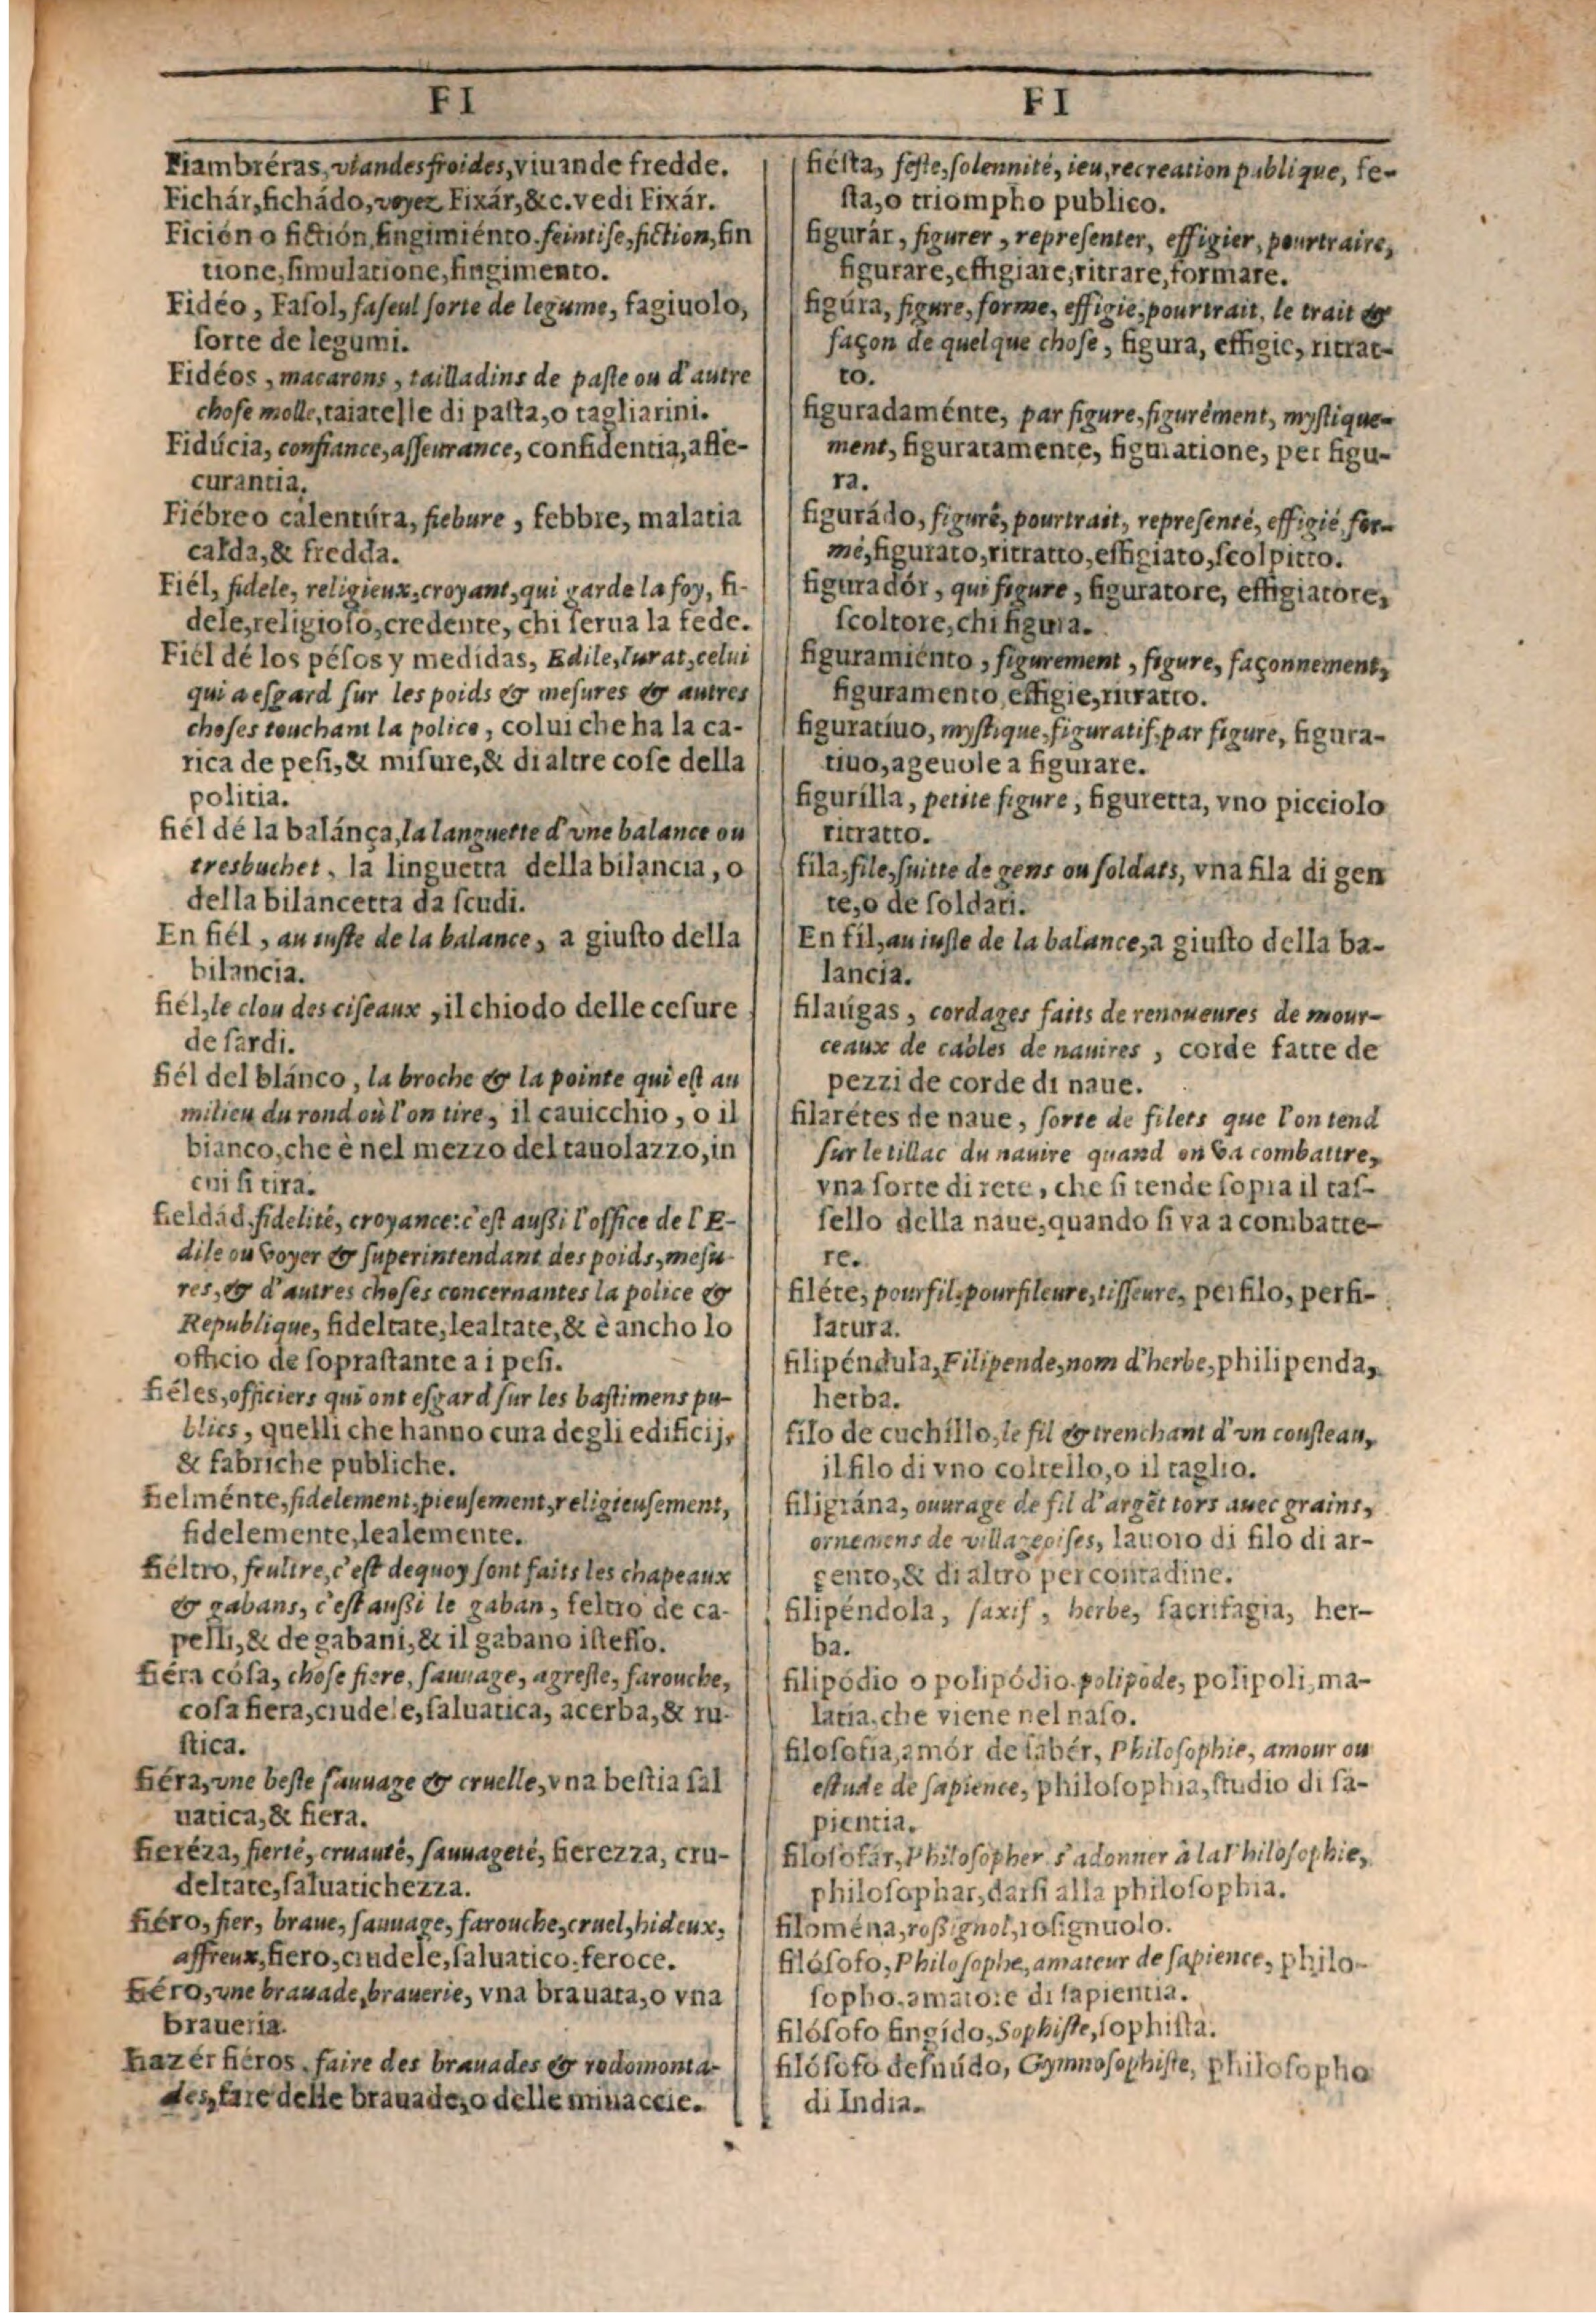 FI
Fiambréras, viandes froides, viuande fredde.
Fichár, fichádo, voyez Fixár, &c. vedi Fixár.
Fición o fictión, fingimiénto. feintise, fiction, fin
tione, simulatione, fingimento.
Fidéo, Fasol, faseul sorte de legume, fagiuolo,
sorte de legumi.
Fidéos, macarons, tailladins de paste ou d'autre
chose molle, taiatelle di pasta, o tagliarini.
Fidúcia, confiance, asseurance, confidentia, asse-
curantia.
Fiébre o calentúra, fiebure, febbre, malatia
calda, & fredda.
Fiél, fidele, religieux, croyant, qui garde la foy, fi-
dele, religioso, credente, chi serua la fede.
Fiél dé los pésos y medídas, Edile, Iurat, celui
qui a esgard sur les poids & mesures & autres
choses touchant la police, colui che ha la ca-
rica de pesi, & misure, & di altre cose della
politia.
fiél dé la balánça, la languette d'vne balance ou
tresbuchet, la linguetta della bilancia, o
della bilancetta da scudi.
En fiél, au iuste de la balance, a giusto della
bilancia.
fiél, le clou des ciseaux, il chiodo delle cesure
de sardi.
fiél del blánco, la broche & la pointe qui est au
milieu du rond où l'on tire, il cauicchio, o il
bianco, che è nel mezzo del tauolazzo, in
cui si tira.
fieldád, fidelité, croyance: c'est aussi l'office de l'E-
dile ou Voyer & superintendant des poids, mesu-
res, & d'autres choses concernantes la police &
Republique, fideltate, lealtate, & è ancho lo
officio de soprastante a i pesi.
fiéles, officiers qui ont esgard sur les bastimens pu-
blics, quelli che hanno cura degli edificij,
& fabriche publiche.
fielménte, fidelement, pieusement, religieusement,
fidelemente, lealemente.
fiéltro, feultre, c'est dequoy sont faits les chapeaux
& gabans, c'est aussi le gaban, feltro de ca-
pelli, & de gabani, & il gabano istesso.
fiéra cósa, chose fiere, sauuage, agreste, farouche,
cosa fiera, crudele, saluatica, acerba, & ru-
stica.
fiéra, vne beste sauuage & cruelle, vna bestia sal
uatica, & fiera.
fieréza, fierté, cruauté, sauuageté, fierezza, cru-
deltate, saluatichezza.
fiéro, fier, braue, sauuage, farouche, cruel, hideux,
affreux, fiero, crudele, saluatico, feroce.
fiéro, vne brauade, brauerie, vna brauata, o vna
braueria.
hazér fiéros, faire des brauades & rodomonta-
des, fare delle brauade, o delle minaccie.
FI
fiésta, feste, solennité, ieu, recreation publique, fe-
sta, o triompho publico.
figurár, figurer, representer, effigier, pourtraire,
figurare, effigiare, ritrare, formare.
figúra, figure, forme, effigie, pourtrait, le trait &
façon de quelque chose, figura, effigie, ritrat-
to.
figuradaménte, par figure, figurément, mystique-
ment, figuratamente, figuratione, per figu-
ra.
figurádo, figuré, pourtrait, representé, effigié, for-
mé, figurato, ritratto, effigiato, scolpitto.
figuradór, qui figure, figuratore, effigiatore,
scoltore, chi figura.
figuramiénto, figurement, figure, façonnement,
figuramento, effigie, ritratto.
figuratíuo, mystique, figuratif, par figure, figura-
tiuo, ageuole a figurare.
figurílla, petite figure, figuretta, vno picciolo
ritratto.
fila, file, suitte de gens ou soldats, vna fila di gen
te, o de soldati.
En fil, au iuste de la balance, a giusto della ba-
lancia.
filaúgas, cordages faits de renoueures de mour-
ceaux de cables de nauires, corde fatte de
pezzi de corde di naue.
filarétes de naue, sorte de filets que l'on tend
sur le tillac du nauire quand on va combattre,
vna sorte di rete, che si tende sopra il tas-
sello della naue, quando si va a combatte-
re.
filéte, pourfil, pourfileure, tisseure, perfilo, perfi-
latura.
filipéndula, Filipende, nom d'herbe, philipenda,
herba.
fílo de cuchíllo, le fil & trenchant d'vn cousteau,
il filo di vno coltello, o il taglio.
filigrána, ouurage de fil d'argẽt tors auec grains,
ornemens de villageoises, lauoro di filo di ar-
gento, & di altro per contadine.
filipéndola, saxif, herbe, sacrifagia, her-
ba.
filipódio o polipódio. polipode, polipoli, ma-
latia, che viene nel naso.
filosofía, amór de sabér, Philosophie, amour ou
estude de sapience, philosophia, studio di sa-
pientia.
filosofár, Philosopher s'adonner à la Philosophie,
philosophar, darsi alla philosophia.
filoména, rossignol, rosignuolo.
filósofo, Philosophe, amateur de sapience, philo-
sopho, amatore di sapientia.
filósofo fingído, Sophiste, sophista.
filósofo desnúdo, Gymnosophiste, philosopho
di India.